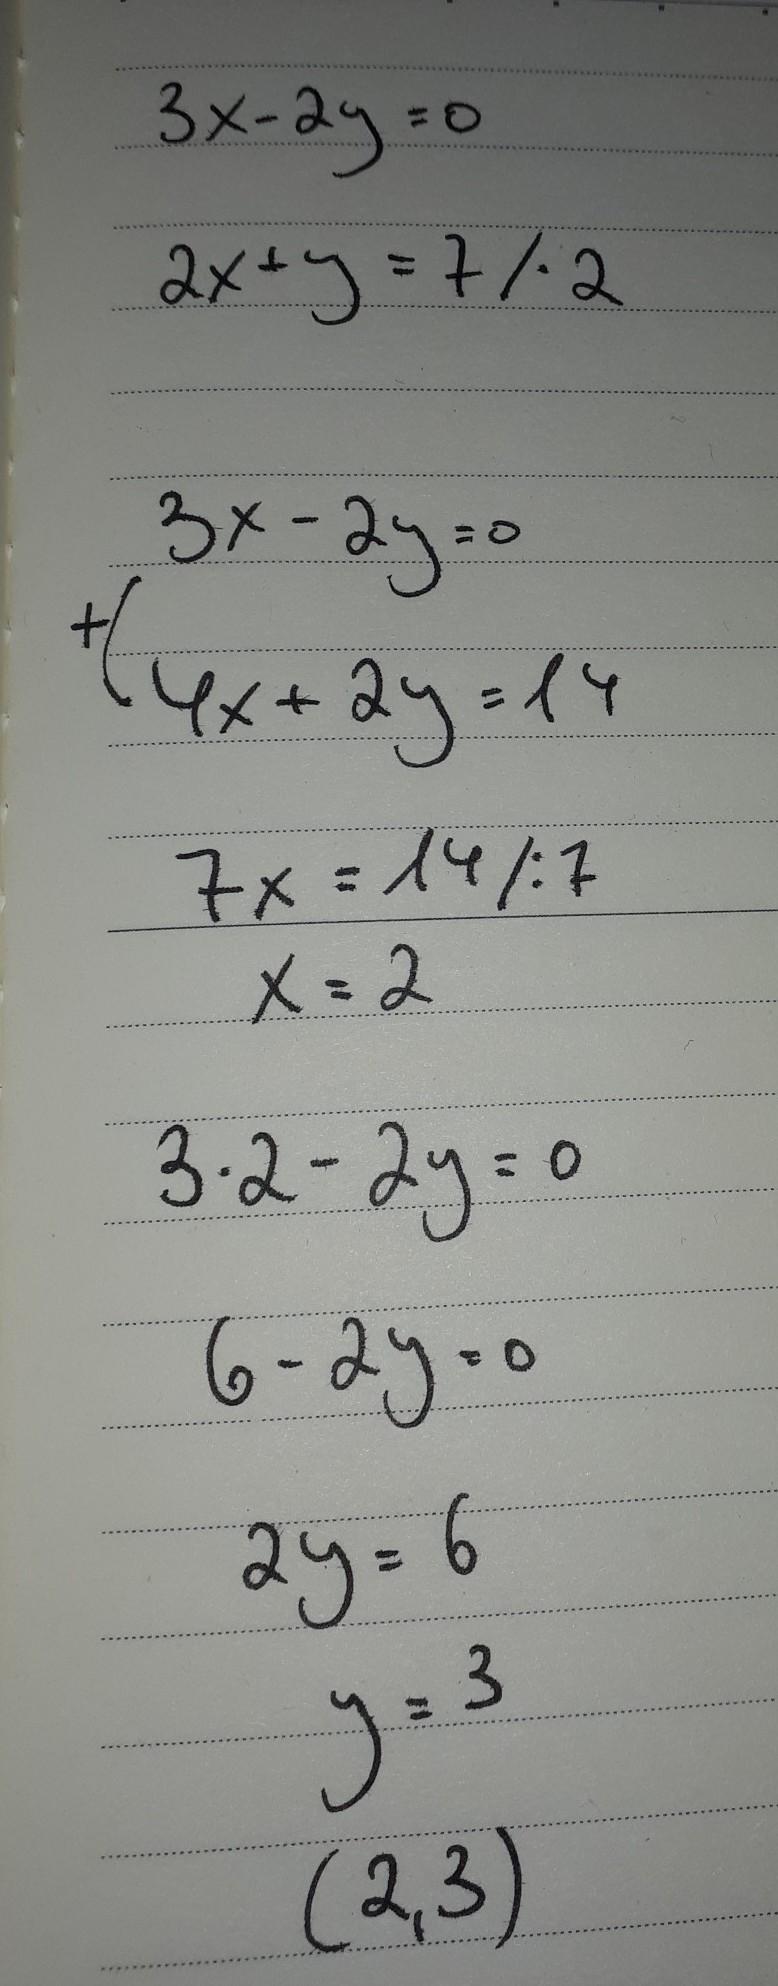 3x-2y=0
2x+y=7/·2
3x-2y=0
+(
4x+2y=14
7x=14/:7
x=2
3·2-2y=0
6-2y=0
2y=6
y=3
(2,3)